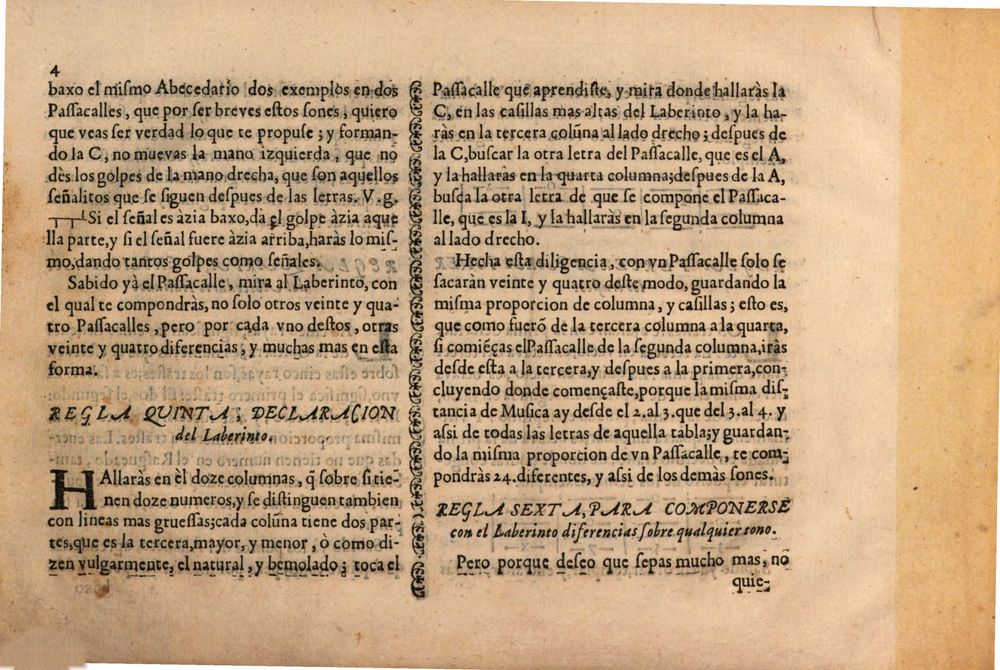 4
baxo el miſmo Abecedario dos exemplos en dos
Paſſacalles, que por ſer breves eſtos ſones, quiero
que veas ſer verdad lo que te propuſe; y forman-
do la C, no muevas la mano izquierda, que no
dès los golpes de la mano drecha, que ſon aquellos
ſeñalitos que ſe ſiguen deſpues de las letras. V. g.
Si el ſeñal es àzia baxo, da el golpe àzia aque
lla parte, y ſi el ſeñal fuere àzia arriba, haràs lo miſ-
mo, dando tantos golpes como ſeñales.
Sabido yà el Paſſacalle, mira al Laberinto, con
el qual te compondràs, no ſolo otros veinte y qua-
tro Paſſacalles, pero por cada vno deſtos, otras
veinte y quatro diferencias; y muchas mas en eſta
forma.
REGLA QUINTA; DECLARACION
del Laberinto.
HAllaràs en èl doze columnas, q̃ ſobre ſi tie-
nen doze numeros, y ſe diſtinguen tambien
con lineas mas grueſſas; cada colũna tiene dos par-
tes, que es la tercera, mayor, y menor, ò como di-
zen vulgarmente, el natural, y bemolado; toca el
Paſſacalle que aprendiſte, y mira donde hallaràs la
C, en las caſillas mas altas del Laberinto, y la ha-
ràs en la tercera colũna al lado drecho; deſpues de
la C, buſcar la otra letra del Paſſacalle, que es el A,
y la hallaràs en la quarta columna; deſpues de la A,
buſca la otra letra de que ſe compone el Paſſaca-
lle, que es la I, y la hallaràs en la ſegunda columna
al lado drecho.
Hecha eſta diligencia, con vn Paſſacalle ſolo ſe
ſacaràn veinte y quatro deſte modo, guardando la
miſma proporcion de columna, y caſillas; eſto es,
que como fuerõ de la tercera columna a la quarta,
ſi comiẽças el Paſſacalle de la ſegunda columna, iràs
deſde eſta a la tercera, y deſpues a la primera, con-
cluyendo donde començaſte, porque la miſma diſ-
tancia de Muſica ay deſde el 2. al 3. que del 3. al 4. y
aſsi de todas las letras de aquella tabla; y guardan-
do la miſma proporcion de vn Paſſacalle, te com-
pondràs 24. diferentes, y aſsi de los demàs ſones.
REGLA SEXTA, PARA COMPONERSE
con el Laberinto diferencias ſobre qualquier tono.
Pero porque deſeo que ſepas mucho mas, no
quie-